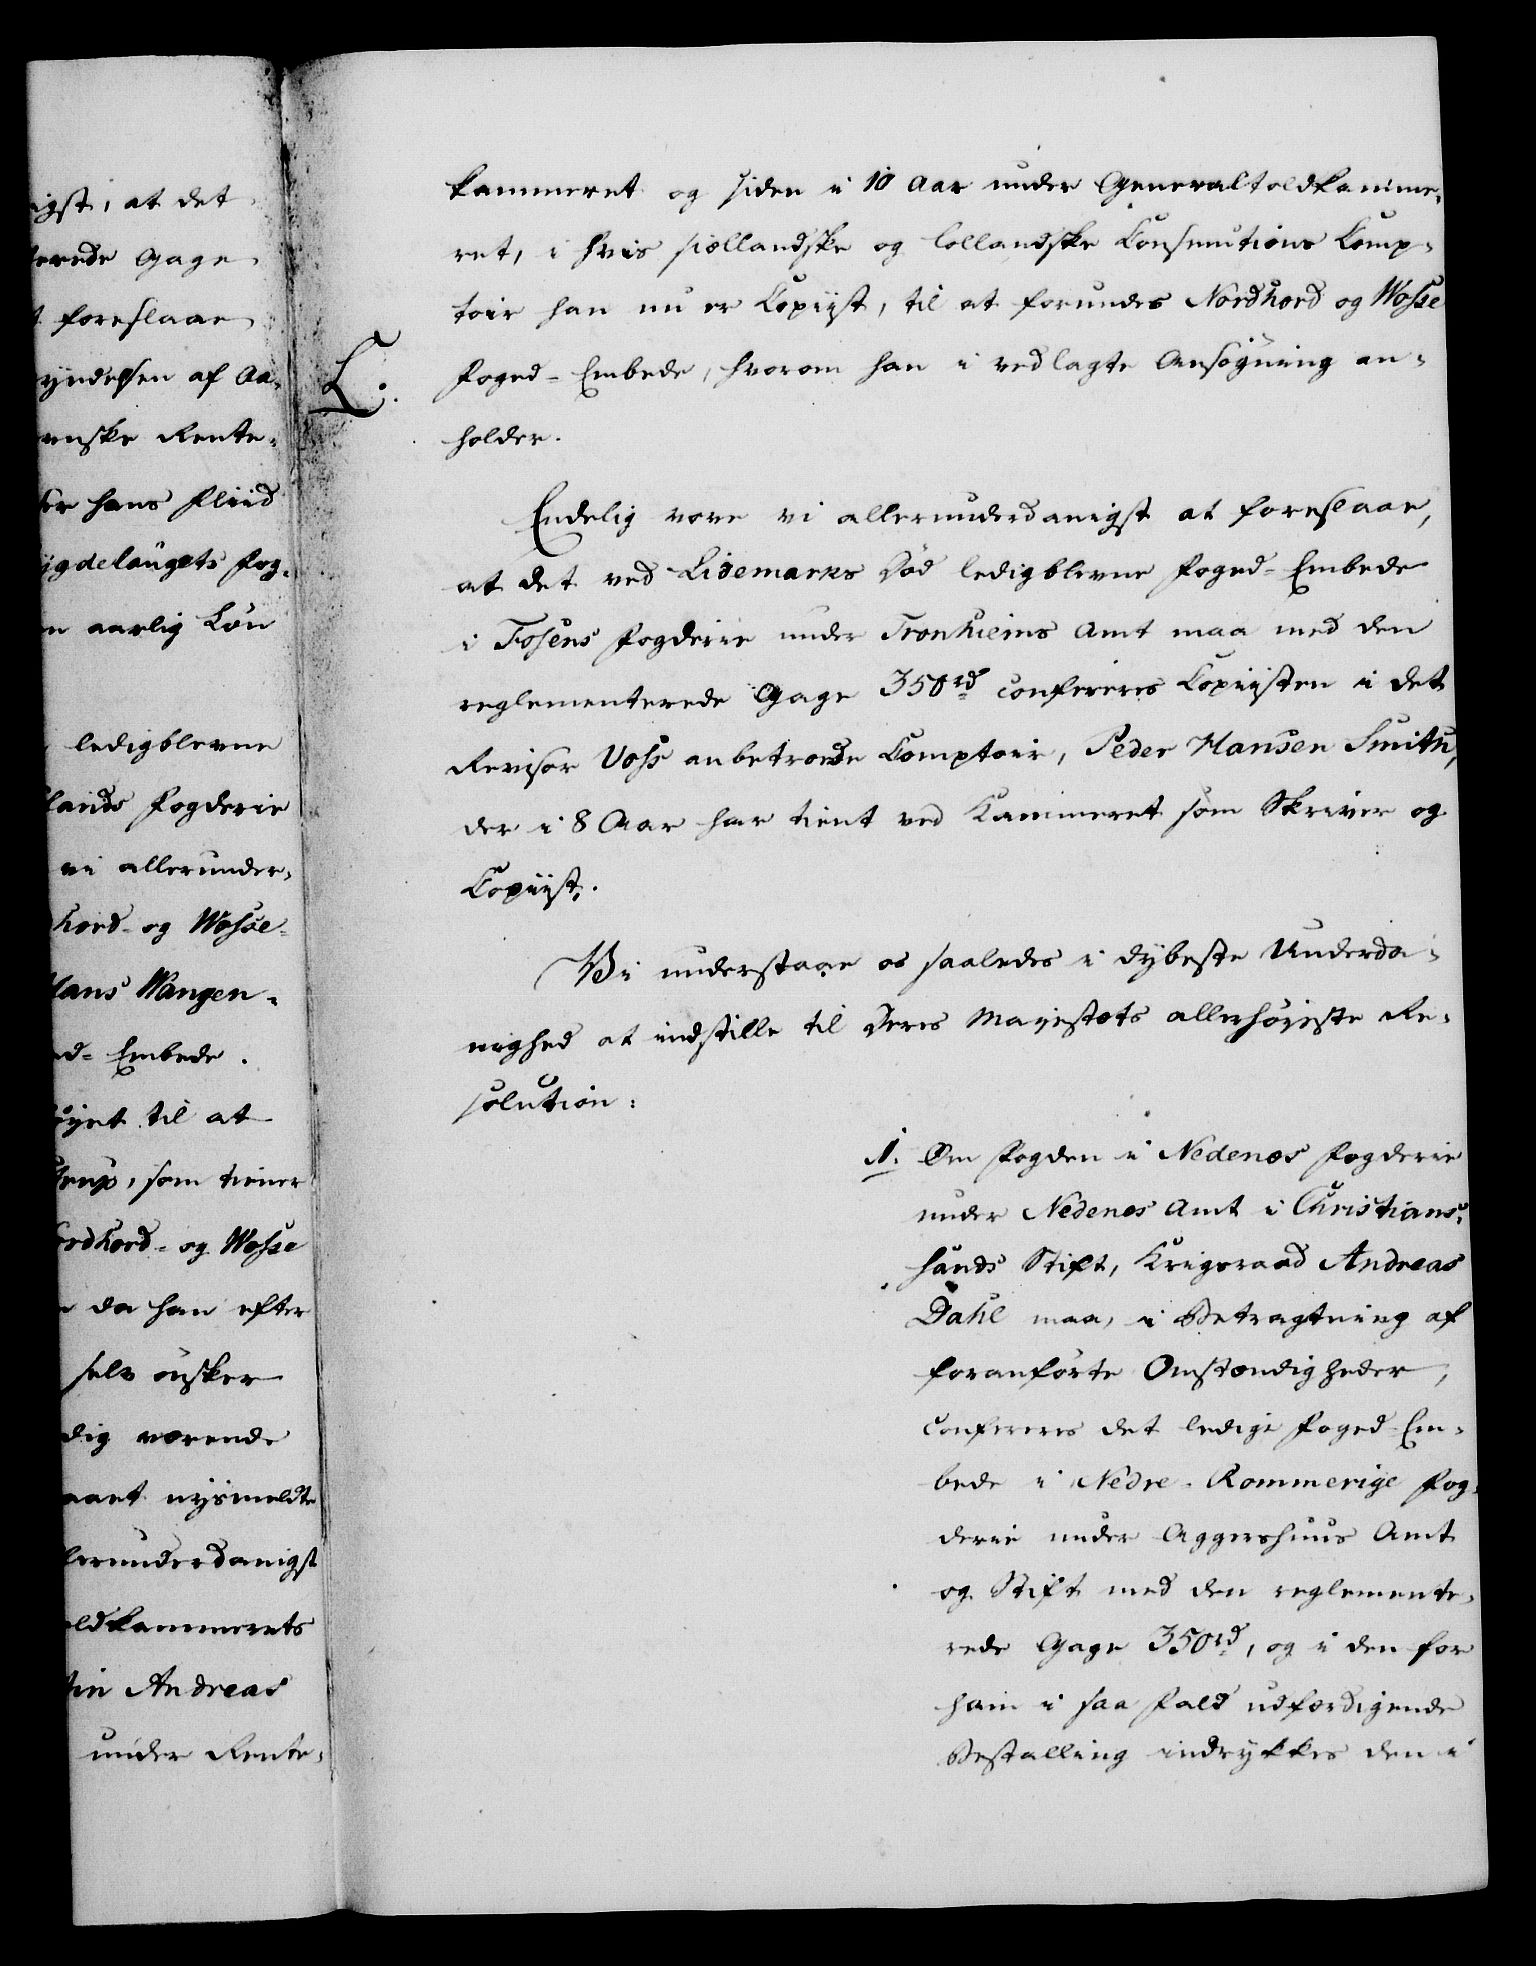 igst, at det
erede Gage
foreslaae
yndelsen af Aa-
enske Rente-
er hans Fliid
ygdelaugets Fog-
en aarlig Løn
ledigblevne
lands Fogderie
vi allerunder-
hord- og Wosse-
Hans Wangen-
ed-Embede.
øyet til at
trup, som tiener
ordhord- og Wosse
da han efter
selv ønsker
dig værende
aaet nysmeldte
lerunderdanigst
oldkammerets
tin Andreas
under Rente-
kammeret og siden i 10 Aar under Generaltoldkamme-
ret, i hvis siællandske og lollandske Consumtions Comp-
toir han nu er Copiist, til at forundes Nordhord og Wosse
L. Foged-Embede, hvorom han i vedlagte Ansøgning an-
holder.
Endelig vove vi allerunderdanigst at foreslaae,
at det ved Lidemarks Død ledigblevne Foged-Embede
i Fosens Fogderie under Tronhiems Amt maa med den
reglementerede Gage 350rd confereres Copiisten i det
Revisor Voss anbetroede Comptoir, Peder Hansen Smith,
der i 8 Aar har tient ved Kammeret som Skriver og
Copiist.
Vi understaae os saaledes i dybeste Underda-
nighed at indstille til Deres Majestæts allerhøjeste Re-
solution:
1. Om Fogden i Nedenæs Fogderie
under Nedenes Amt i Christians-
sands Stift, Krigsraad Andreas
Dahl maa, i Betragtning af
foranførte Omstændigheder,
confereres det ledige Foged-Em-
bede i Nedre-Rommerige Fog-
derie under Aggershuus Amt
og Stift med den reglemente-
rede Gage 350rd, og i den for
ham i saa Fald udfærdigende
Bestalling indrykkes den i